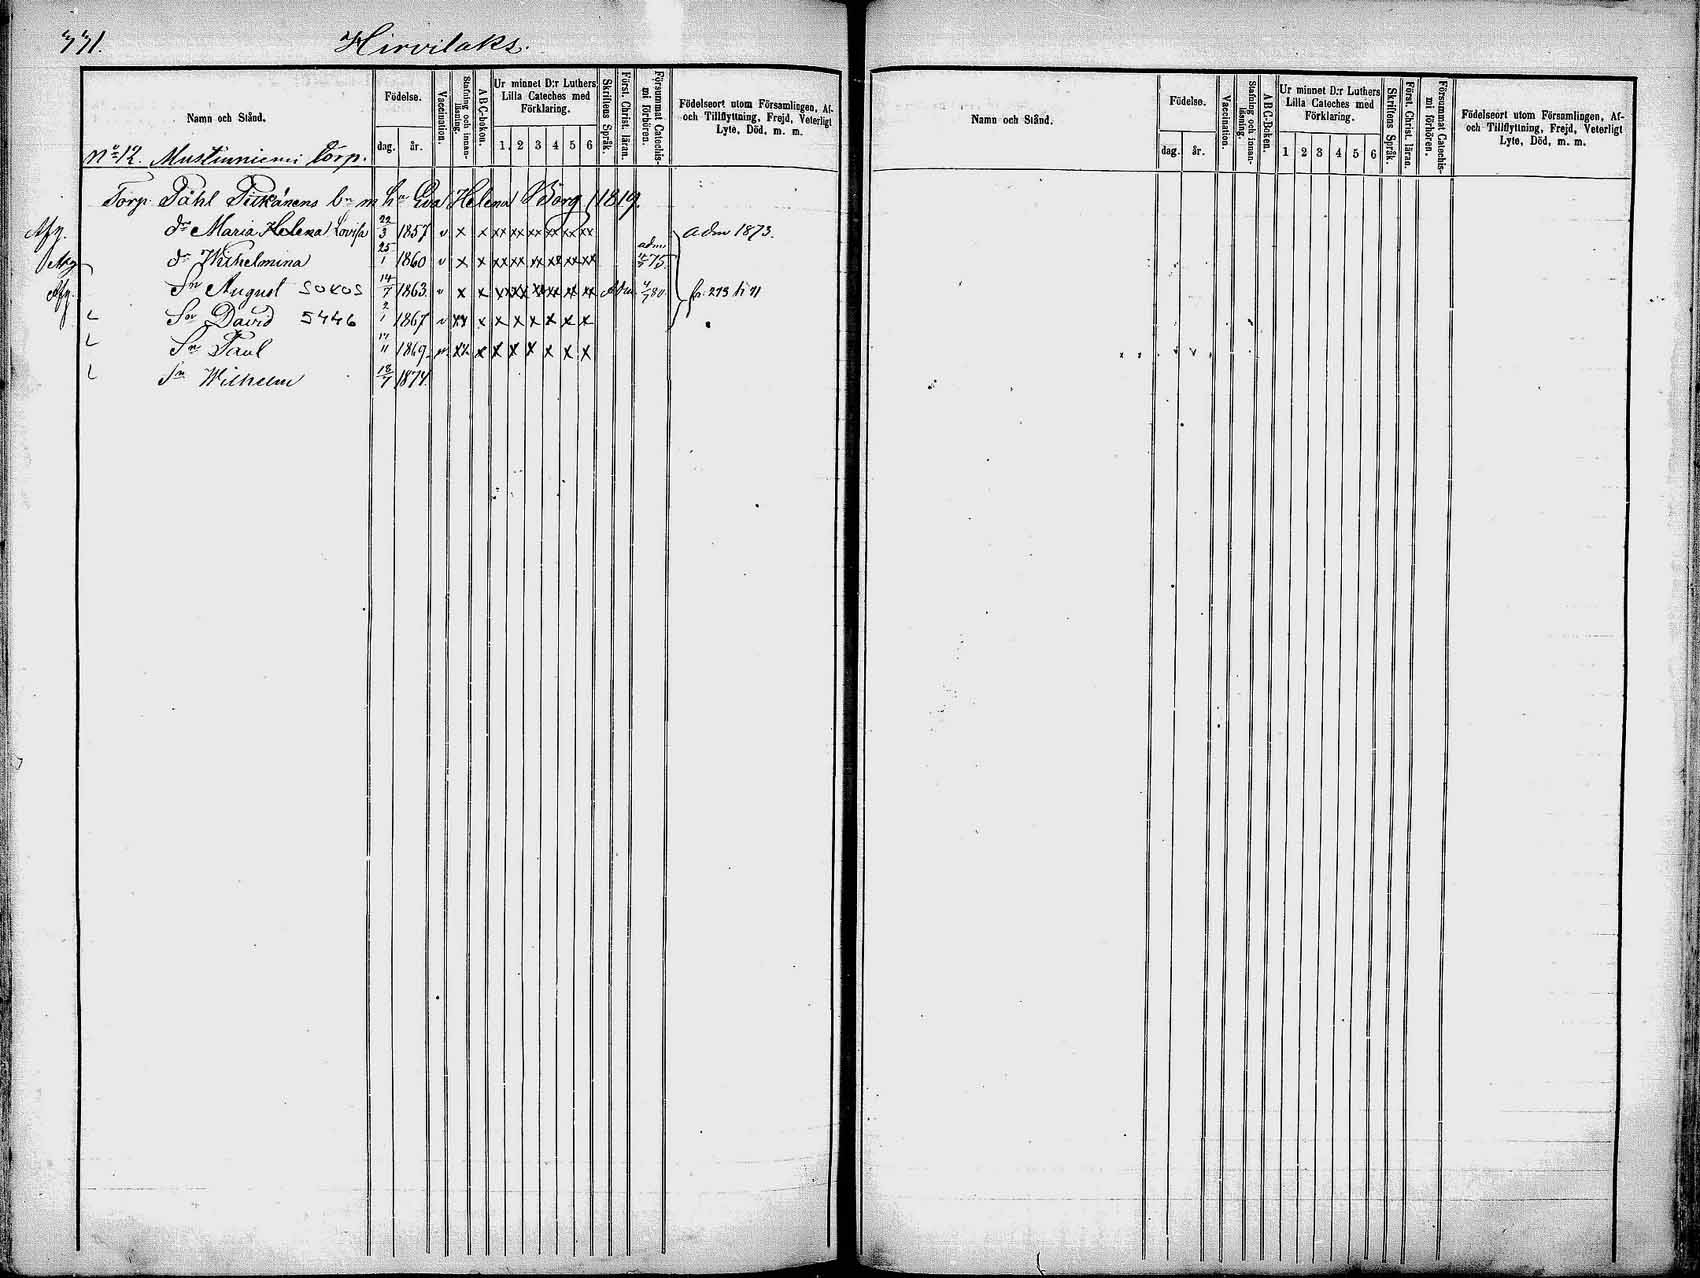 331.
Hirvilaks.
Namn och Stånd.
Födelse.
dag.
år.
Vaccination.
Stafning och innan-läsning.
A B C-boken.
Ur minnet D:r Luthers Lilla Cateches med Förklaring.
1. 2 3 4 5 6
Skriftens Språk.
Först. Christ. läran.
Försummat Catechismi förhören.
Födelseort utom Församlingen, Af- och Tillflyttning, Frejd, Veterligt Lyte, Död, m. m.
No 12. Mustinniemi torp.
Torp. Påhl Piikánens bn m hu Eva Helena Borg 1819.
Afg. dr Maria Helena Lovisa 22/3 1857 v x x xx xx xx xx xx xx adm 1873.
dr Wilhelmina 25/1 1860 v x x xx xx xx xx xx xx adm 75.
Afg. Sn August SOKOS 14/7 1863. v x x xx xx xx xx xx xx Adm. 80. fr. 273
Sn David 5446 2/1 1867 v xx x x x x x x x
Sn Paul 11 1869. xx x x x x x x x
Sn Wilhelm 18/7 1874.
Namn och Stånd.
Födelse.
dag.
år.
Vaccination.
Stafning och innan-läsning.
A B C-Boken.
Ur minnet D:r Luthers Lilla Cateches med Förklaring.
1 2 3 4 5 6
Skriftens Språk.
Först. Christ. läran.
Försummat Catechismi förhören.
Födelseort utom Församlingen, Af- och Tillflyttning, Frejd, Veterligt Lyte, Död, m. m.